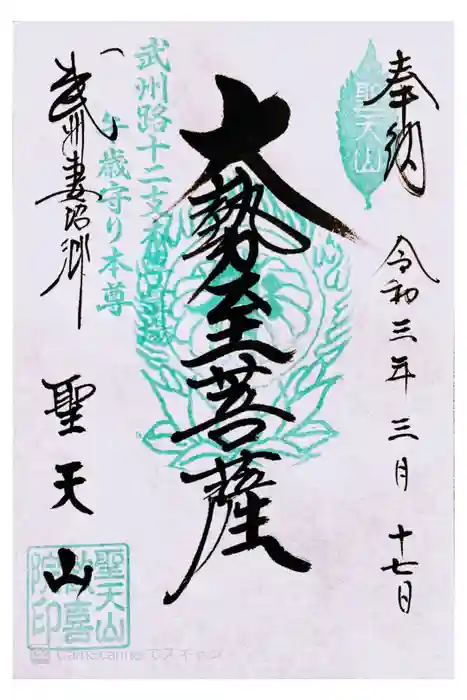 奉納
聖天山
令和三年三月十七日
大勢至菩薩
武州路十二支
午歳守り本尊
武州妻沼郷
聖天山
聖天山
歓喜
院印
CamScannerでスキャン